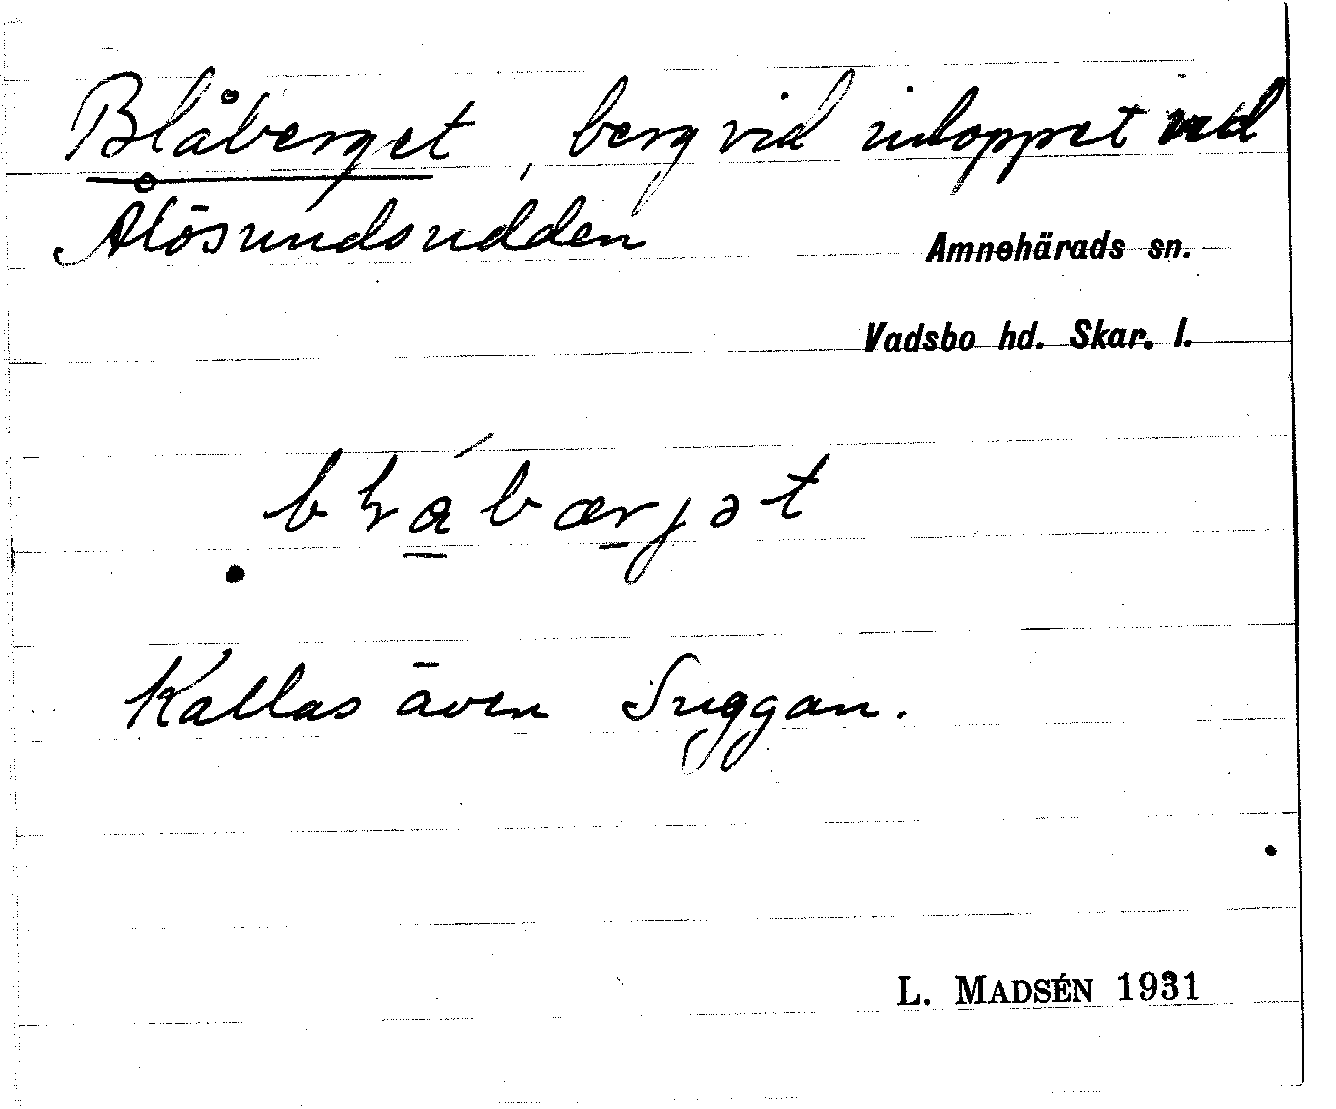 Blåberget, berg vid inloppet vid
Ålösundsudden
Amnehärads sn.
Vadsbo hd. Skar. l.
Kallas även Suggan.
L. MADSÉN 1931